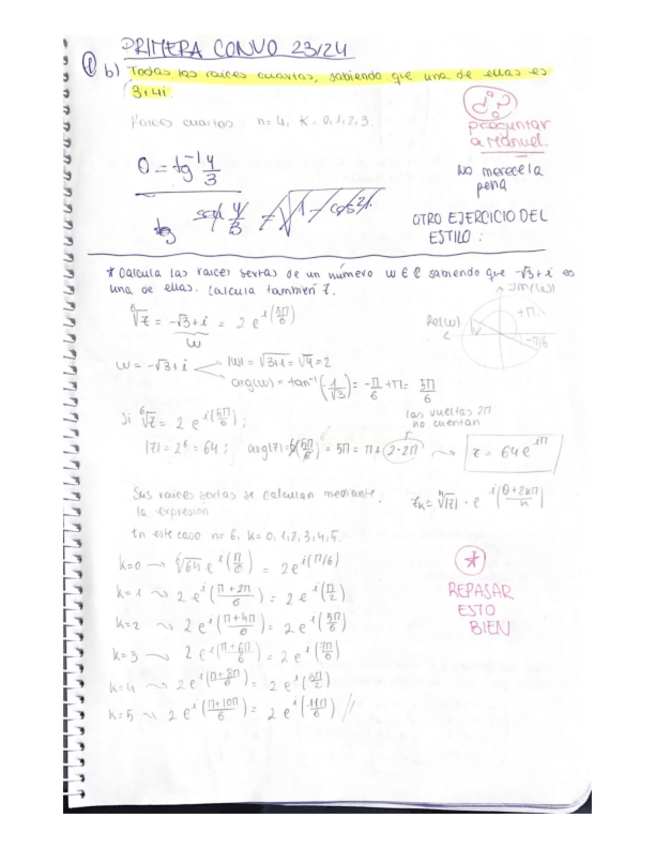 PRIMERA CONVO 23/24
① b) Todas las raíces cuartas, sabiendo que una de ellas es
3+4i.
Raíces cuartas: n=4, K=0,1,2,3.
¿?
preguntar
a Manuel.
θ = tg⁻¹ 4/3
No merece la
pena
tg
OTRO EJERCICIO DEL
ESTILO:
* Calcula las raíces sextas de un número w ∈ ℂ sabiendo que -√3+i es
una de ellas. Calcula también z.
⁶√z = -√3+i = 2 e^i(5π/6)
w
Im(w)
Re(w)
+π
-π/6
w = -√3+i
|w| = √3+1 = √4 = 2
arg(w) = tan⁻¹(1/√3) = -π/6 + π = 5π/6
las vueltas 2π
no cuentan
Si ⁶√z = 2 e^i(5π/6);
|z| = 2⁶ = 64; arg(z) = 6(5π/6) = 5π = π + 2·2π → z = 64 e^iπ
Sus raíces sextas se calculan mediante
la expresión
z_k = ⁿ√|z| · e^i(θ+2kπ/n)
En este caso n=6, k=0,1,2,3,4,5.
k=0 → ⁶√64 e^i(π/6) = 2e^i(π/6)
k=1 → 2 e^i(π+2π/6) = 2 e^i(π/2)
k=2 → 2 e^i(π+4π/6) = 2 e^i(5π/6)
k=3 → 2 e^i(π+6π/6) = 2 e^i(7π/6)
k=4 → 2 e^i(π+8π/6) = 2 e^i(3π/2)
k=5 → 2 e^i(π+10π/6) = 2 e^i(11π/6) //
*
REPASAR
ESTO
BIEN